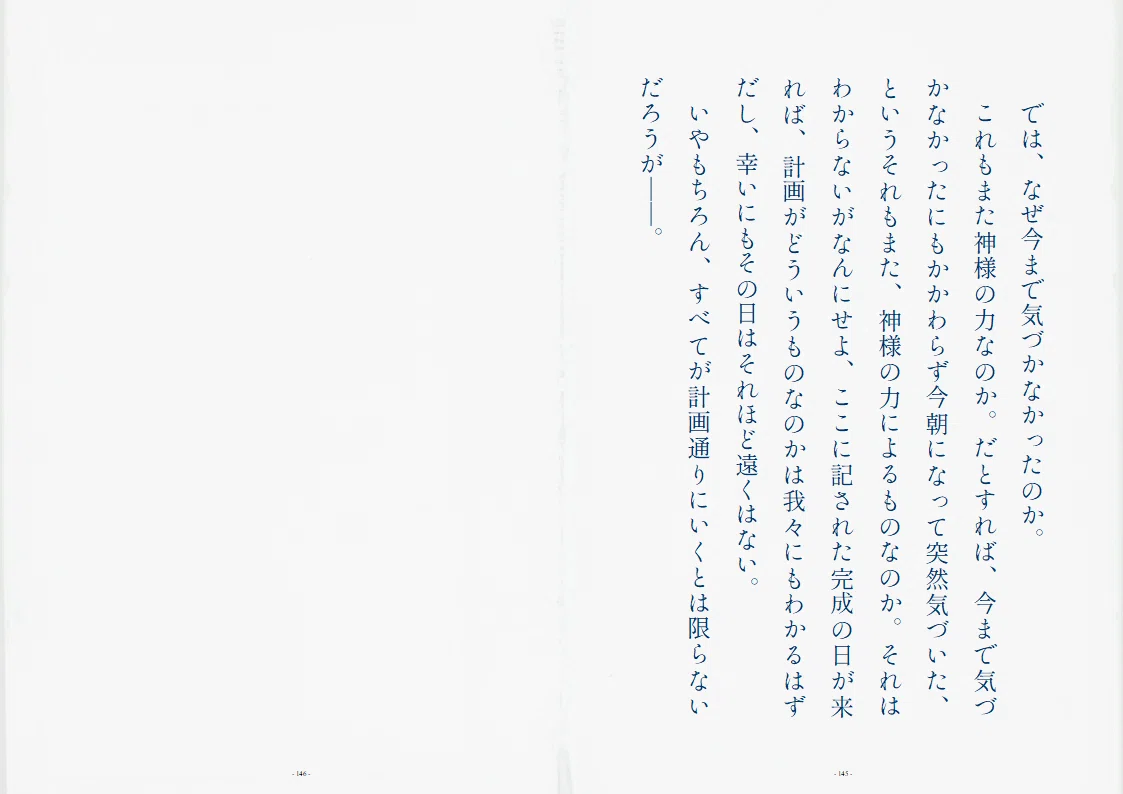 では、なぜ今まで気づかなかったのか。
これもまた神様の力なのか。だとすれば、今まで気づ
かなかったにもかかわらず今朝になって突然気づいた、
というそれもまた、神様の力によるものなのか。それは
わからないがなんにせよ、ここに記された完成の日が来
れば、計画がどういうものなのかは我々にもわかるはず
だし、幸いにもその日はそれほど遠くはない。
いやもちろん、すべてが計画通りにいくとは限らない
だろうが――。
- 145 -
- 146 -